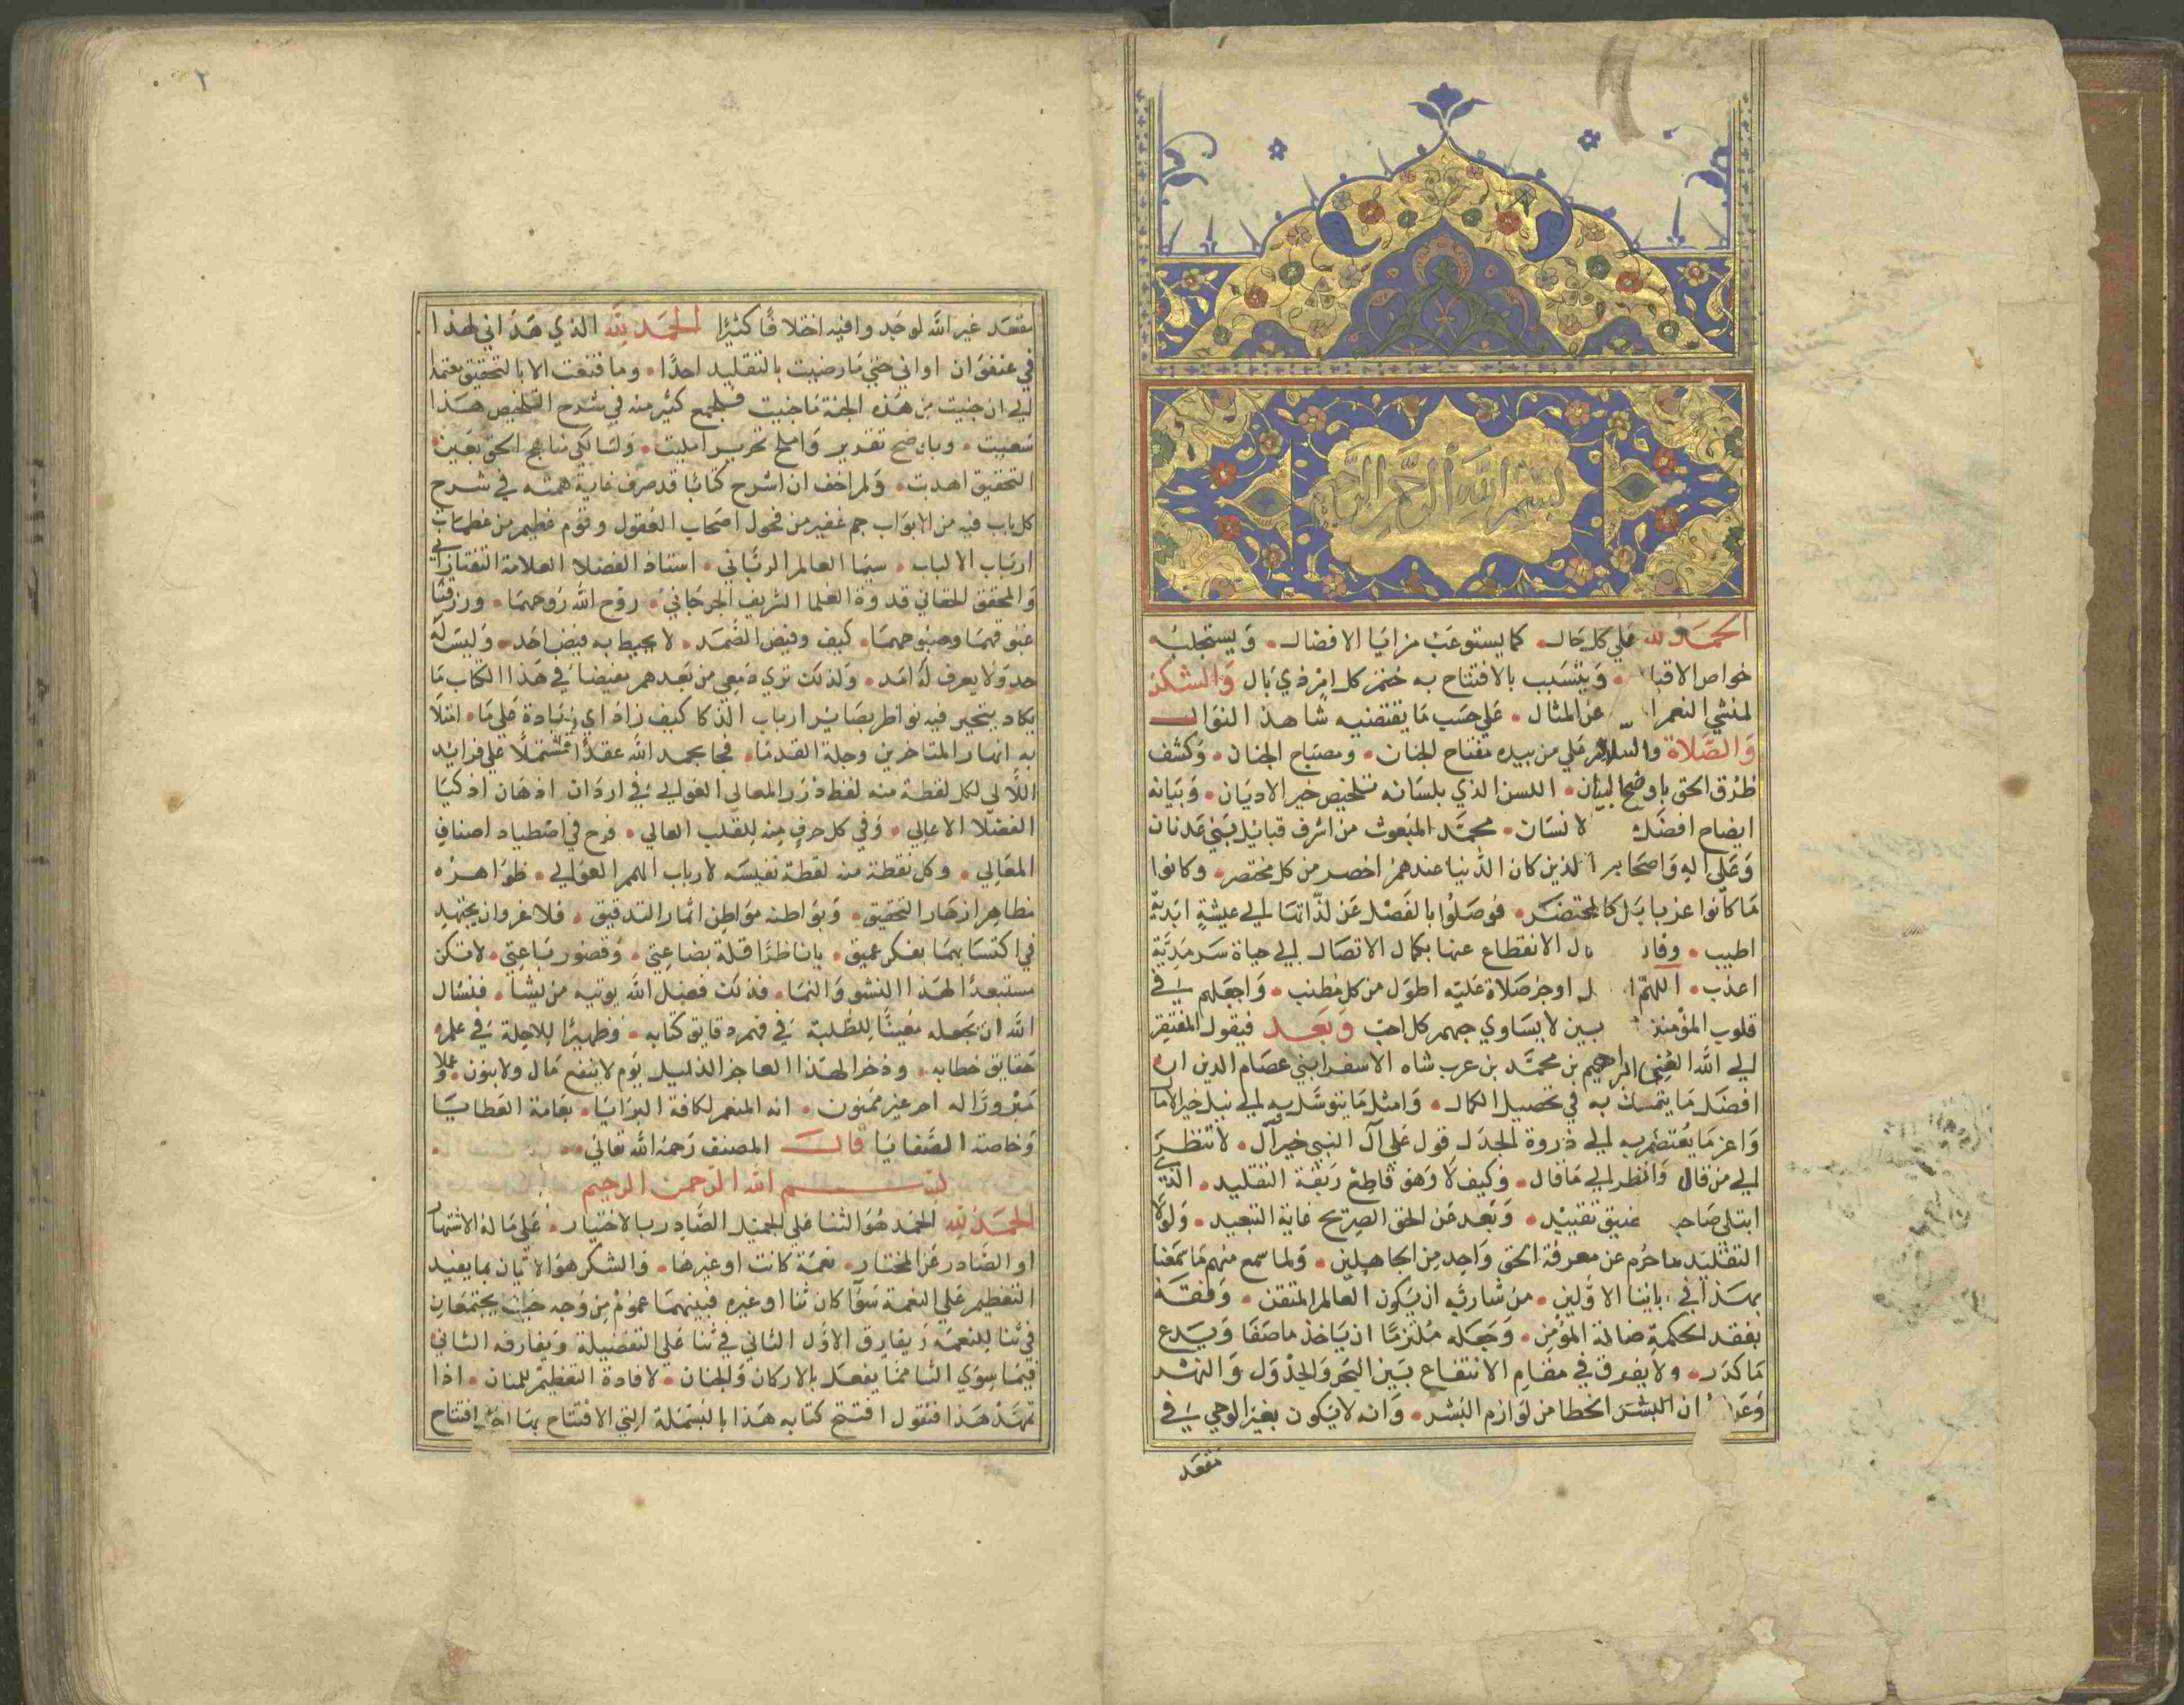 بسم الله الرحمن الرحيم
الحمد لله علي كل حال كما يستوعب مزايا الافضال ويستجلبه
خواص الاقبا ويتسبب بالافتتاح به ختم كل امر ذي بال والشكر
لمنشي النعم عن المثال علي حسب ما يقتضيه شاهد النوال
والصلاة والسلام علي من بيده مفتاح الجنان ومصباح الجنان وكشف
طرق الحق باوضح البيان اللسن الذي بلسانه تلخيص خير الاديان وبيانه
ايضاح افضل لانسان محمد المبعوث من اشرف قبائل بني عدنان
وعلي اله واصحابه الذين كان الدنيا عندهم اخصر من كل مختصر وكانوا
ما كانوا عزبا بل كالمحتضر فوصلوا بالفصل عن لذاتنا الي عيشة ابدية
اطيب وفاز الانقطاع عنها بكمال الاتصال الي حياة سرمدية
اعذب اللهم اوجز صلاة عليه اطول من كل مطنب واجعلهم في
قلوب المؤمنين لا يساوي حبهم كل احب وبعد فيقول المفتقر
الي الله الغني ابراهيم بن محمد بن عرب شاه الاسفرايني عصام الدين ان
افضل ما يتمسك به في تحصيل الكمال وامثل ما يتوسل به الي نيل خير الاما
واعز ما يعتصم به الي ذروة الجدل قول علي آل النبي خير آل لا تنظر
الي من قال وانظر الي ما قال وكيف لا وهو قاطع ربقة التقليد التي
ابتلي صاحب تقييد وبعد عن الحق الصريح غاية التبعيد ولولا
التقليد ما حرم عن معرفة الحق واحد من الجاهلين ولما سمع منهم ما سمعنا
بهذا في ابائنا الاولين من شا ربه ان يكون العالم المتقن وفقه
بفقد الحكمة ضالة المؤمن وجعله ملتزما ان ياخذ ما صفا ويدع
ما كدر ولا يفرق في مقام الانتفاع بين البحر والجدول والنهر
ان البشر الخطا من لوازم البشر وانه لا يكون بغير الوحي في
مقعد
٢
مقعد غير الله لوجدوا فيه اختلافا كثيرا الحمد لله الذي هداني لهذا
في عنفوان اواني حتي ما رضيت بالتقليد احدا وما قنعت الا بالتحقيق معتمدا
الي ان جنيت من هذه الجنة ما جنيت فلجمع كثير منه في شرح التلخيص هذا
سعيت وباوضح تقدير واملح تحرير امليت ولسالكي مناهج الحق بعين
التحقيق اهديت ولم اخف ان اشرح كتابا قد صرف غاية همته في شرح
كل باب فيه من الابواب جم غفير من فحول اصحاب العقول وقوم عظيم من عظماء
ارباب الالباب سيما العالم الرباني استاذ الفضلا العلامة التفتازاني
والمحقق الحقاني قدوة العلما الشريف الجرجاني روح الله روحهما ورزقنا
غبوقهما وصبوحهما كيف وفيض الصمد لا يحيط به فيض احد وليس له
حد ولا يعرف له امد ولذلك تري معي من بعدهم مفيضا في هذا الكتاب ما
يكاد يتحير فيه نواظر بصائر ارباب الذكا كيف زاد اي زيادة علي ما امتلا
به انهار المتاخرين وجلة القدما فجا بحمد الله عقدا مشتملا علي فرائد
اللآلي لكل لفظة منه لفظ درر المعالي الغوالي في اردان اذهان اذكيا
الفضلا الاعالي وفي كل حرف منه للقلب العالي فرح في اصطياد اصناف
المعالي وكل نقطة منه لقطة نفيسه لارباب الهمم العوالي ظواهره
مظاهر ازهار التحقيق وبواطنه مواطن اثمار التدقيق فلا غرو ان يجتهد
في اكتسابهما بفكر عميق يا ناظرا قلة بضاعتي وقصور باعتي لا تكن
مستبعدا لهذا النشو والنما فذلك فضل الله يوتيه من يشا فنسال
الله ان يجعله مغيثا للطلبة في فهم دقايق كتابه وظهيرا للاجلة في علم
حقايق خطابه وذخرا لهذا العاجز الذليل يوم لا ينفع مال ولا بنون وعملا
مبرورا له اجر غير ممنون انه المنعم لكافة البرايا بعامة العطايا
وخاصة الصفايا قال المصنف رحمه الله تعالي
بسم الله الرحمن الرحيم
الحمد لله الحمد هو الثنا علي الجميل الصادر بالاختيار علي ما له الاشتهار
او الصادر عن المختار نعمة كانت او غيرها والشكر هو الاتيان بما يفيد
التعظيم علي النعمة سوا كان ثنا او غيره فبينهما عموم من وجه حيث يجتمعان
في ثنا للنعمة ويفارق الاول الثاني في ثنا علي الفضيلة ويفارقه الثاني
فيما سوي الثنا مما يفعل بالاركان والجنان لافادة التعظيم للمنان اذا
تمهد هذا فنقول افتتح كتابه هذا بالبسملة التي الافتتاح بها افتتاح